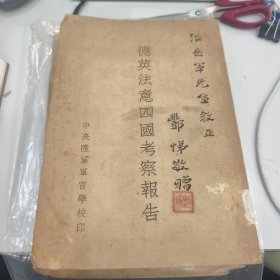 張岳軍先生教正
鄧悌敬贈
德英法意四國考察報告
中央陸軍軍官學校印